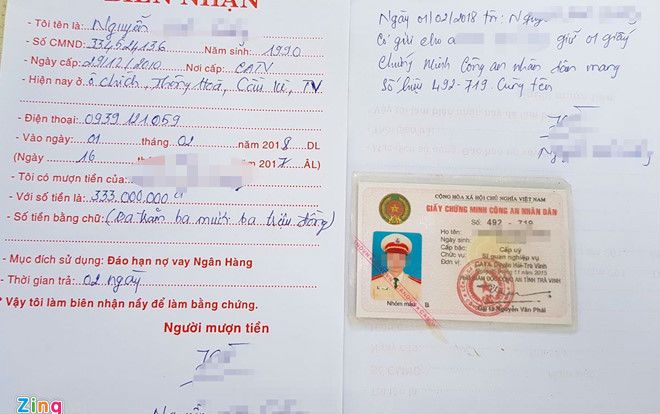 BIÊN NHẬN
- Tôi tên là: Nguyễn
- Số CMND: 334524136 Năm sinh: 1990
- Ngày cấp: 29/12/2010 Nơi cấp: CATV
- Hiện nay ở ô Chích, Thông Hoà, Cầu Kè, TV
- Điện thoại: 0939121059
- Vào ngày: 01 tháng 02 năm 2018 DL
(Ngày 16 thá 2017 ÂL)
- Tôi có mượn tiền của
- Với số tiền là: 333.000.000
- Số tiền bằng chữ: (Ba trăm ba mươi ba triệu đồng)
- Mục đích sử dụng: Đáo hạn nợ vay Ngân Hàng
- Thời gian trả: 02 ngày
* Vậy tôi làm biên nhận nầy để làm bằng chứng.
Người mượn tiền
Nguyễn
Zing
Ngày 01/02/2018 tn: Nguy
Có gửi cho a giữ 01 giấy
Chứng Minh Công an nhân dân mang
Số hiệu 492-719. Cùng tên
Ng
CỘNG HÒA XÃ HỘI CHỦ NGHĨA VIỆT NAM
GIẤY CHỨNG MINH CÔNG AN NHÂN DÂN
Số: 492 - 719
Họ tên:
Ngày sinh:
Cấp bậc: Cấp uý
Chức vụ: Sĩ quan nghiệp vụ
Đơn vị: CATX Duyên Hải-Trà Vinh
tháng 11 năm 2015
GIÁM ĐỐC CÔNG AN TỈNH TRÀ VINH
Nhóm máu: B
Đại tá Nguyễn Văn Phải